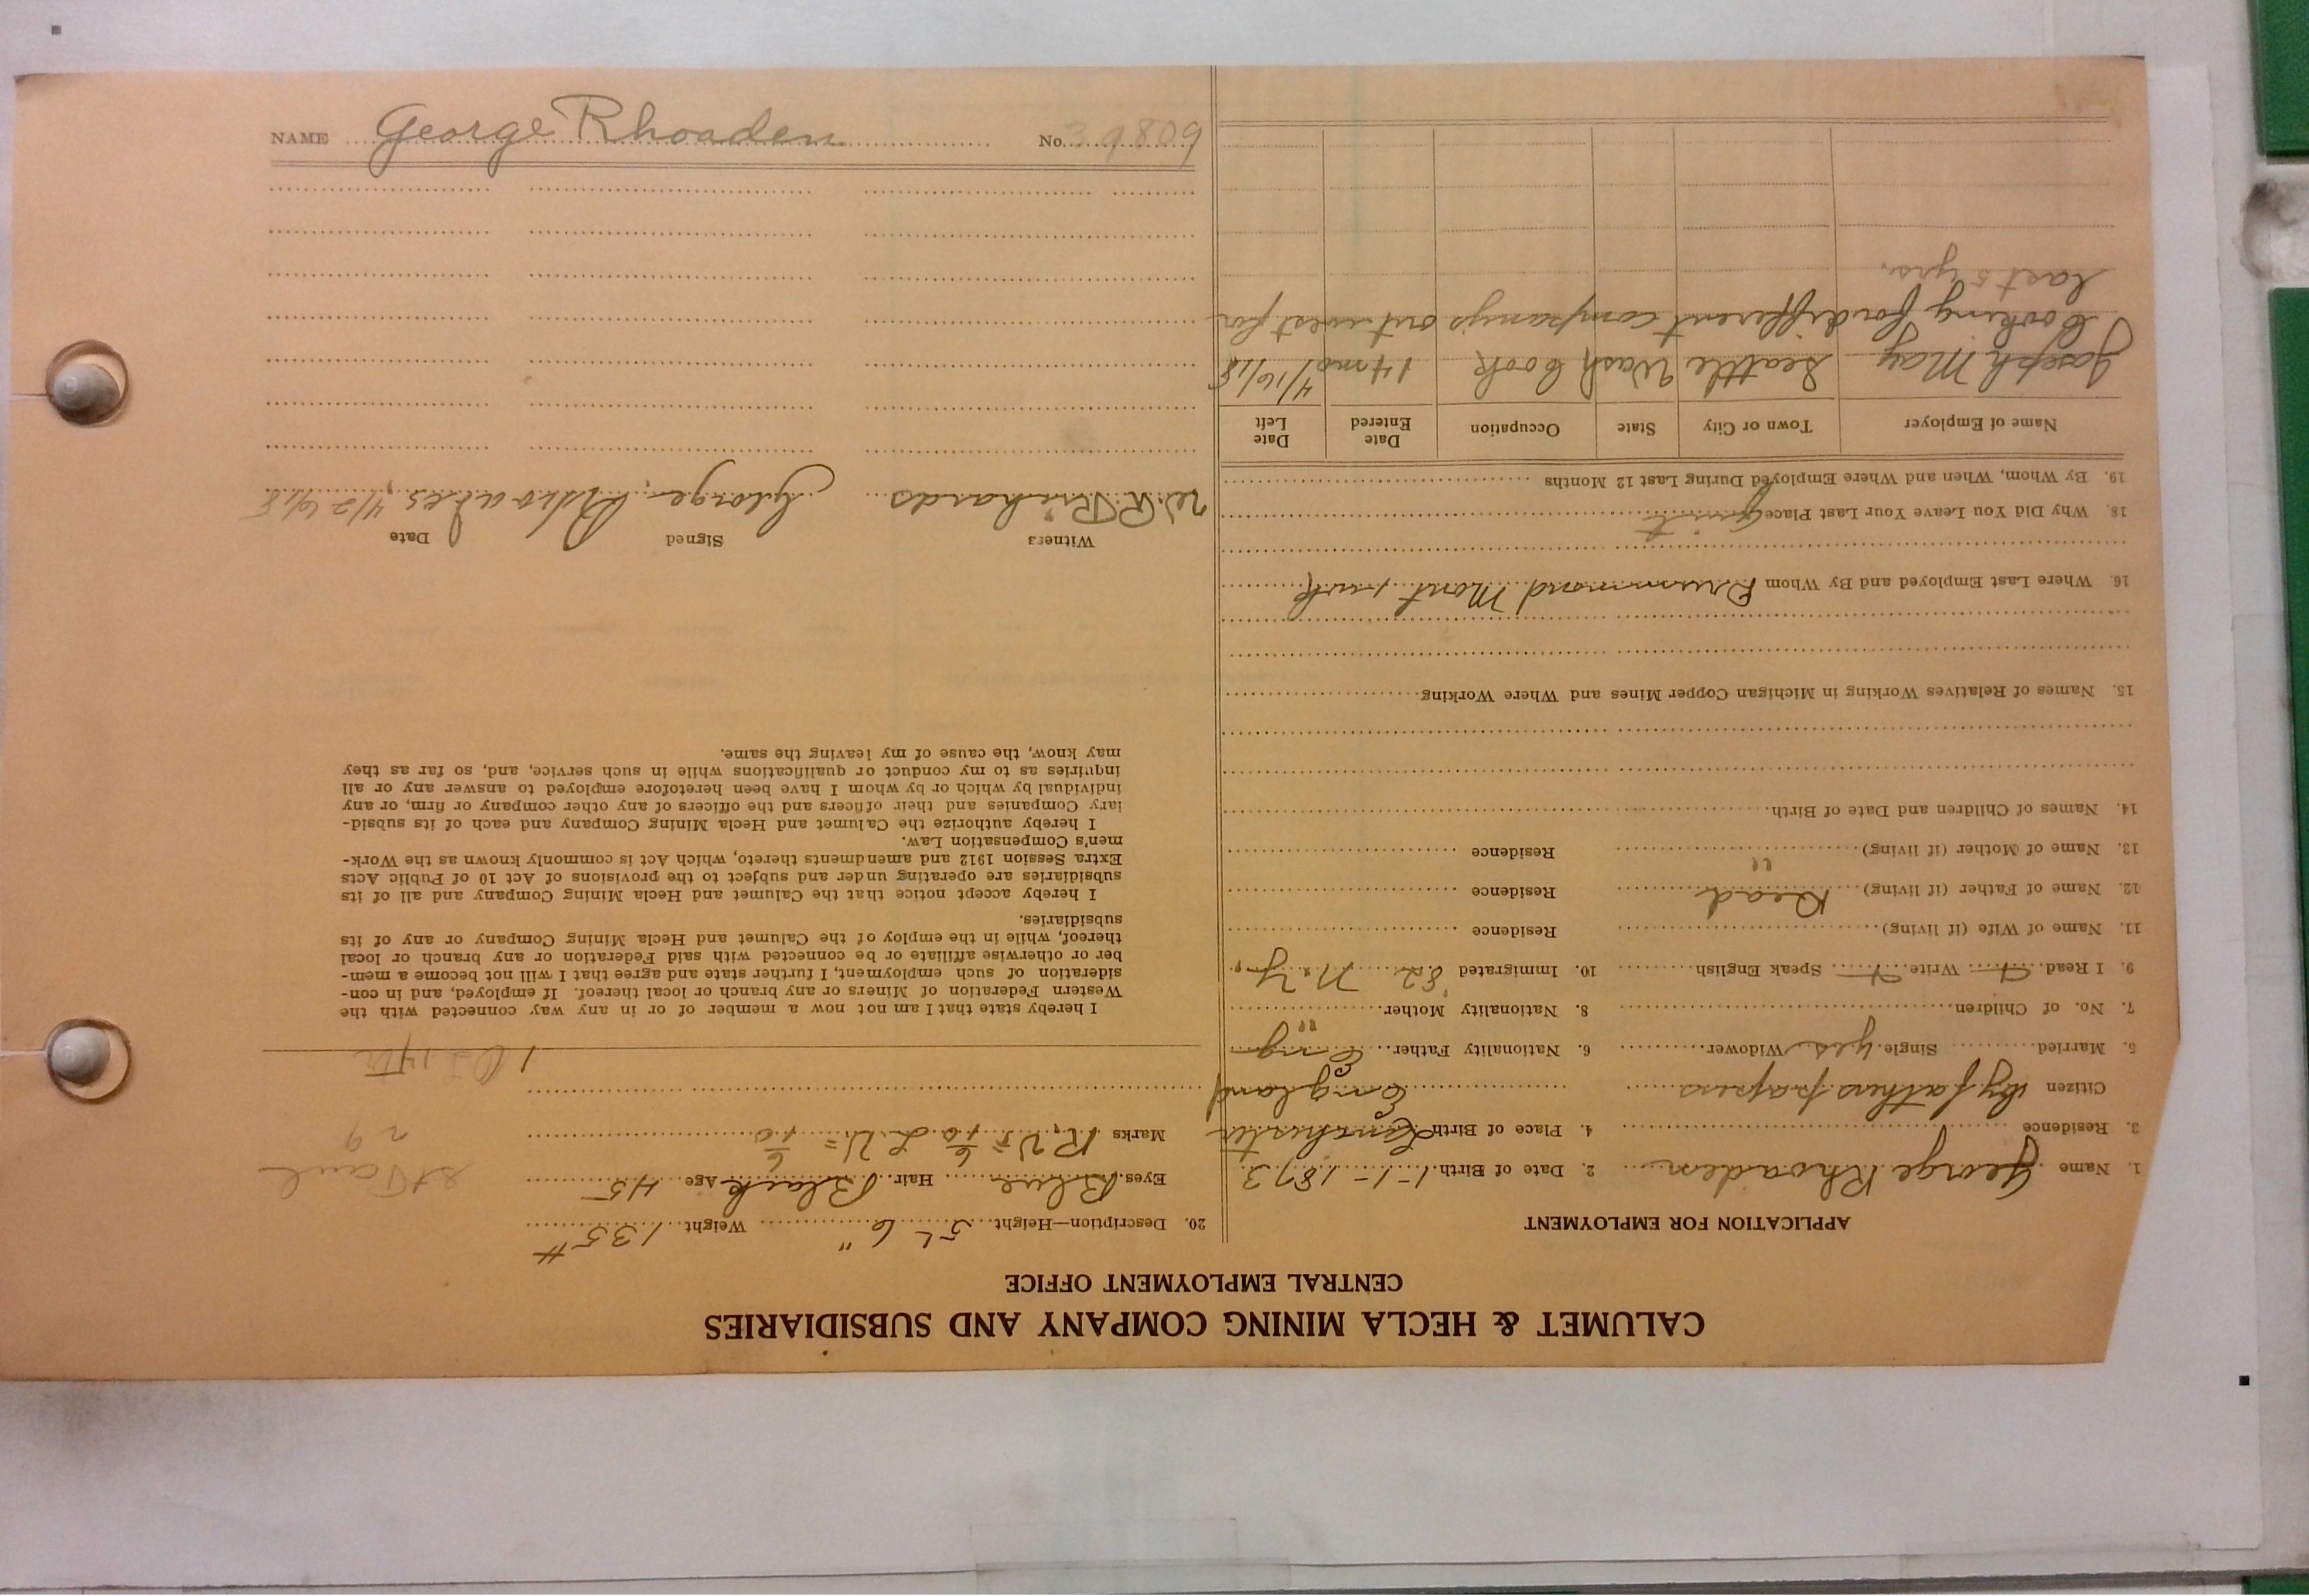 CALUMET & HECLA MINING COMPANY AND SUBSIDIARIES
CENTRAL EMPLOYMENT OFFICE
APPLICATION FOR EMPLOYMENT
1. Name George Rhoaden 2. Date of Birth 1-1-1873
3. Residence 4. Place of Birth
Citizen by fathers papers England
5. Married Single yes Widower 6. Nationality Father Eng
7. No. of Children 8. Nationality Mother "
9. I Read Write Speak English 10. Immigrated 82 N.Y.
11. Name of Wife (if living) Residence
12. Name of Father (if living) Dead Residence
13. Name of Mother (if living) " Residence
14. Names of Children and Date of Birth
15. Names of Relatives Working in Michigan Copper Mines and Where Working
16. Where Last Employed and By Whom Drummond Mont 1 wk
18. Why Did You Leave Your Last Place Quit
19. By Whom, When and Where Employed During Last 12 Months
Name of Employer Town or City State Occupation Date Entered Date Left
Joseph May Seattle Wash Cook 14 mo 4/16/18
Cooking for different companys out west for
last 5 yrs.
20. Description—Height 5' 6" Weight 135#
Eyes Blue Hair Black Age 45
Marks R.V= 6/10 L.V= 6/10
St Paul
29
I hereby state that I am not now a member of or in any way connected with the
Western Federation of Miners or any branch or local thereof. If employed, and in con-
sideration of such employment, I further state and agree that I will not become a mem-
ber or otherwise affiliate or be connected with said Federation or any branch or local
thereof, while in the employ of the Calumet and Hecla Mining Company or any of its
subsidiaries.
I hereby accept notice that the Calumet and Hecla Mining Company and all of its
subsidiaries are operating under and subject to the provisions of Act 10 of Public Acts
Extra Session 1912 and amendments thereto, which Act is commonly known as the Work-
men's Compensation Law.
I hereby authorize the Calumet and Hecla Mining Company and each of its subsid-
iary Companies and their officers and the officers of any other company or firm, or any
individual by which or by whom I have been heretofore employed to answer any or all
inquiries as to my conduct or qualifications while in such service, and, so far as they
may know, the cause of my leaving the same.
Witness Signed Date
W.R. Richards George 4/26/18
NAME George Rhoaden No. 39809